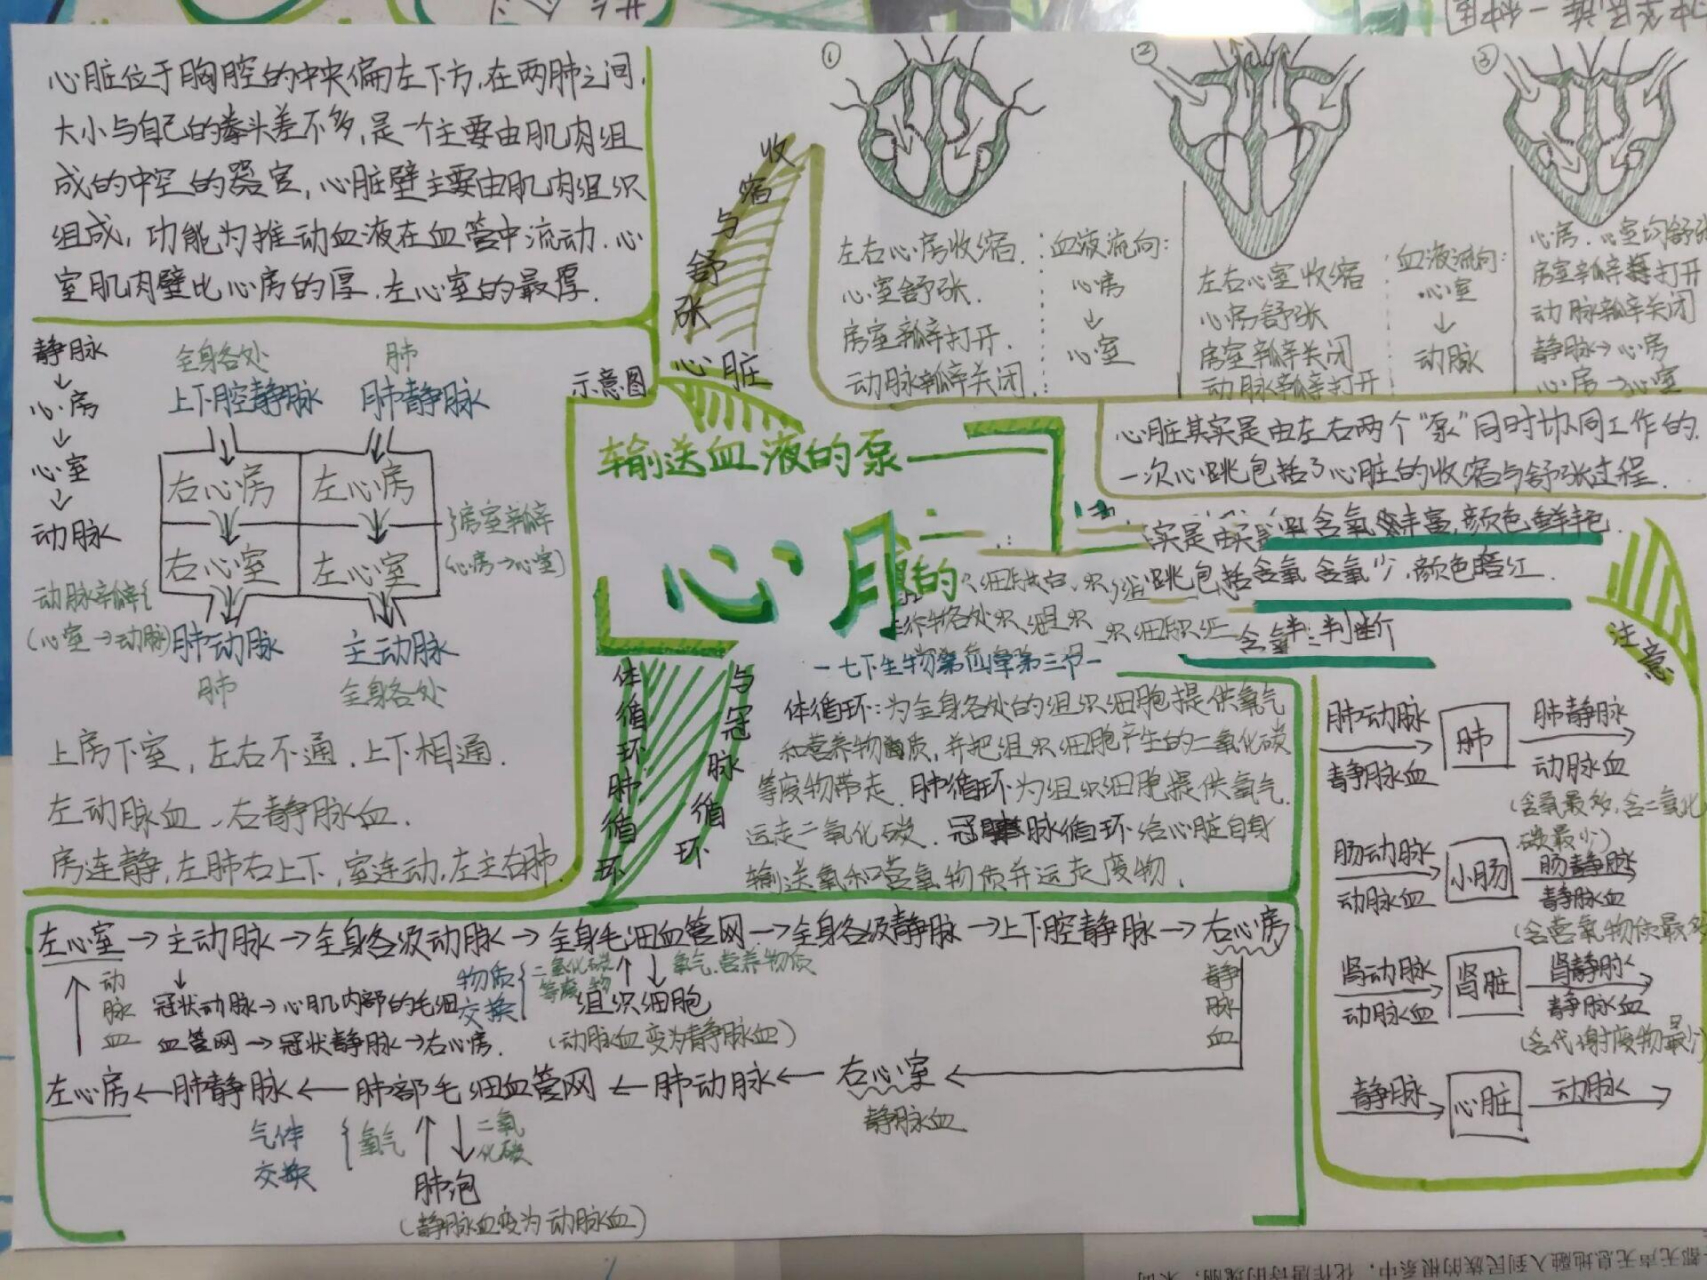 心脏位于胸腔的中央偏左下方,在两肺之间,
大小与自己的拳头差不多,是一个主要由肌肉组
成的中空的器官,心脏壁主要由肌肉组织
组成,功能为推动血液在血管中流动.心
室肌肉壁比心房的厚.左心室的最厚.
静脉
↓
心房
↓
心室
↓
动脉
全身各处
肺
上下腔静脉
肺静脉
右心房
左心房
右心室
左心室
房室瓣
(心房→心室)
动脉瓣
(心室→动脉)
肺动脉
主动脉
肺
全身各处
上房下室,左右不通,上下相通.
左动脉血、右静脉血.
房连静,左肺右上下,室连动,左主右肺.
示意图
心脏
收缩与舒张
输送血液的泵
①
左右心房收缩.
心室舒张.
房室瓣打开.
动脉瓣关闭.
血液流向:
心房
↓
心室
②
左右心室收缩
心房舒张
房室瓣关闭
动脉瓣打开
血液流向:
心室
↓
动脉
③
心房.心室均舒张
房室瓣打开
动脉瓣关闭
静脉→心房
心房→心室
心脏其实是由左右两个“泵”同时协同工作的.
一次心跳包括了心脏的收缩与舒张过程.
心
的
实是由
含氧丰富,颜色鲜
跳包括含氧 含氧少,颜色暗红.
各处
判断
-七下生物第四章第三节-
注意
体循环肺循环
与冠脉循环
体循环:为全身各处的组织细胞提供氧气
和营养物质,并把组织细胞产生的二氧化碳
等废物带走.肺循环为组织细胞提供氧气.
运走二氧化碳.冠脉循环给心脏自身
输送氧和营氧物质并运走废物.
肺动脉
静脉血
肺
肺静脉
动脉血
(含氧最多,含二氧化
碳最少)
肠动脉
动脉血
小肠
肠静脉
静脉血
(含营氧物质最多
肾动脉
动脉血
肾脏
肾静脉
静脉血
(含代谢废物最少
静脉
心脏
动脉
左心室→主动脉→全身各级动脉→全身毛细血管网→全身各级静脉→上下腔静脉→右心房
动脉血
冠状动脉→心肌内部的毛细
血管网→冠状静脉→右心房.
物质
交换
二氧化碳
等废物
氧气.营养物质
组织细胞
(动脉血变为静脉血)
静脉血
左心房←肺静脉←肺部毛细血管网←肺动脉←右心室
静脉血
气体
交换
氧气
二氧
化碳
肺泡
(静脉血变为动脉血)